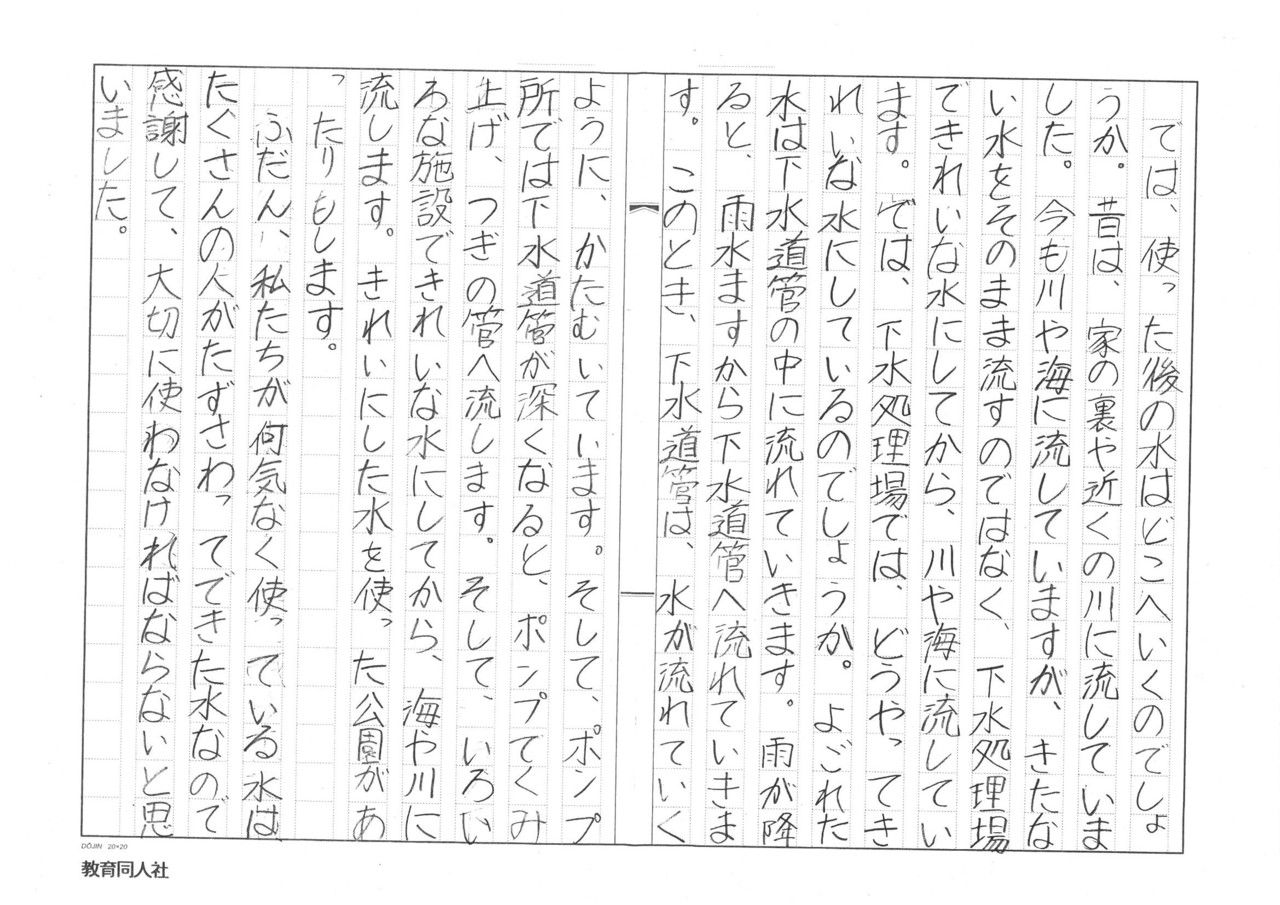 では、使った後の水はどこへいくのでしょ
うか。昔は、家の裏や近くの川に流していま
した。今も川や海に流していますが、きたな
い水をそのまま流すのではなく、下水処理場
できれいな水にしてから、川や海に流してい
ます。では、下水処理場では、どうやってき
れいな水にしているのでしょうか。よごれた
水は下水道管の中に流れていきます。雨が降
ると、雨水ますから下水道管へ流れていきま
す。このとき、下水道管は、水が流れていく
ように、かたむいています。そして、ポンプ
所では下水道管が深くなると、ポンプでくみ
上げ、つぎの管へ流します。そして、いろい
ろな施設できれいな水にしてから、海や川に
流します。きれいにした水を使った公園があ
ったりもします。
ふだん、私たちが何気なく使っている水は、
たくさんの人がたずさわってできた水なので
感謝して、大切に使わなければならないと思
いました。
DŌJIN 20×20
教育同人社